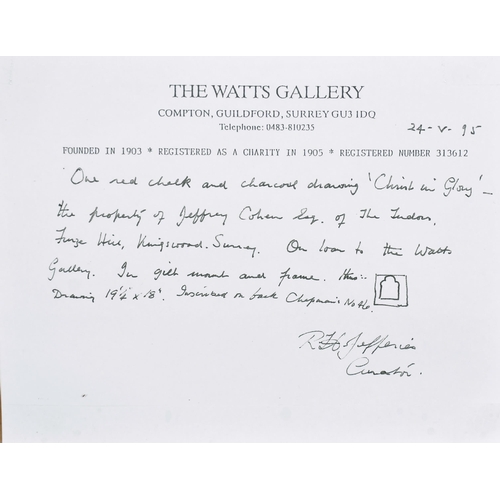 THE WATTS GALLERY
COMPTON, GUILDFORD, SURREY GU3 1DQ
Telephone: 0483-810235
24-V-95
FOUNDED IN 1903 * REGISTERED AS A CHARITY IN 1905 * REGISTERED NUMBER 313612
One red chalk and charcoal drawing 'Christ in Glory' -
the property of Jeffrey Cohen Esq. of The Tudors,
Furze Hill, Kingswood. Surrey. On loan to the Watts
Gallery. In gilt mount and frame. thus:-
Drawing 19¼" x 18". Inscribed on back Chapman's No 46.
Jefferies
Curator.